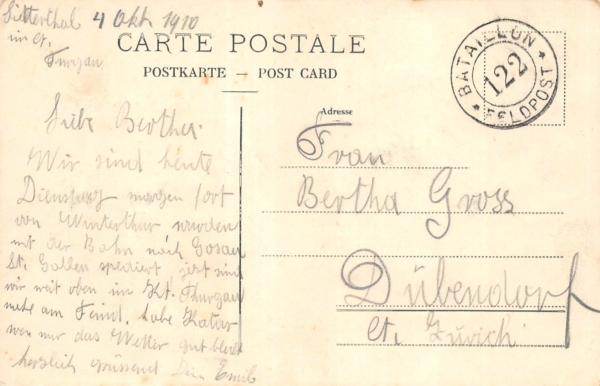 Sitterthal 4 Okt. 1910
im Ct.
Thurgau
CARTE POSTALE
POSTKARTE — POST CARD
BATAILLON 122
* FELDPOST *
Adresse
Frau
Bertha Gross
Dübendorf
Ct. Zürich
Liebe Berther.
Wir sind heute
Dienstag morgen fort
von Winterthur wurden
mit der Bahn nach Gosau
St. Gallen spediert jetzt sind
wir weit oben im Kt. Thurgau
nahe am Feind.
wen nur das Wetter gut bleibt
herzlich grüssend Dein Emil